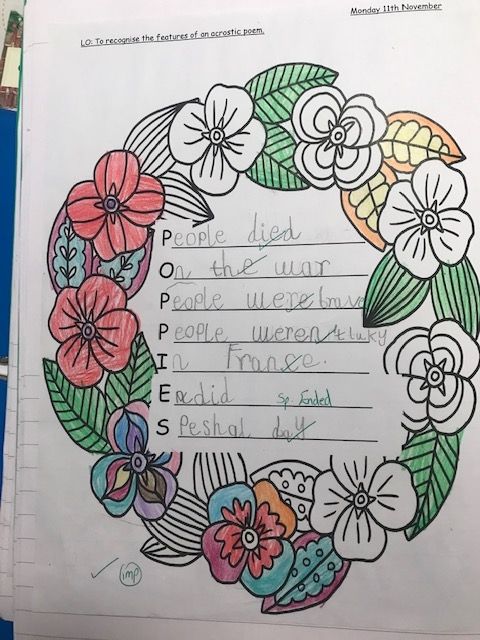 Monday 11th November
LO: To recognise the features of an acrostic poem.
People died
On the war
People were brave
People weren't luky
In France.
Endid sp ended
Speshal day
imp